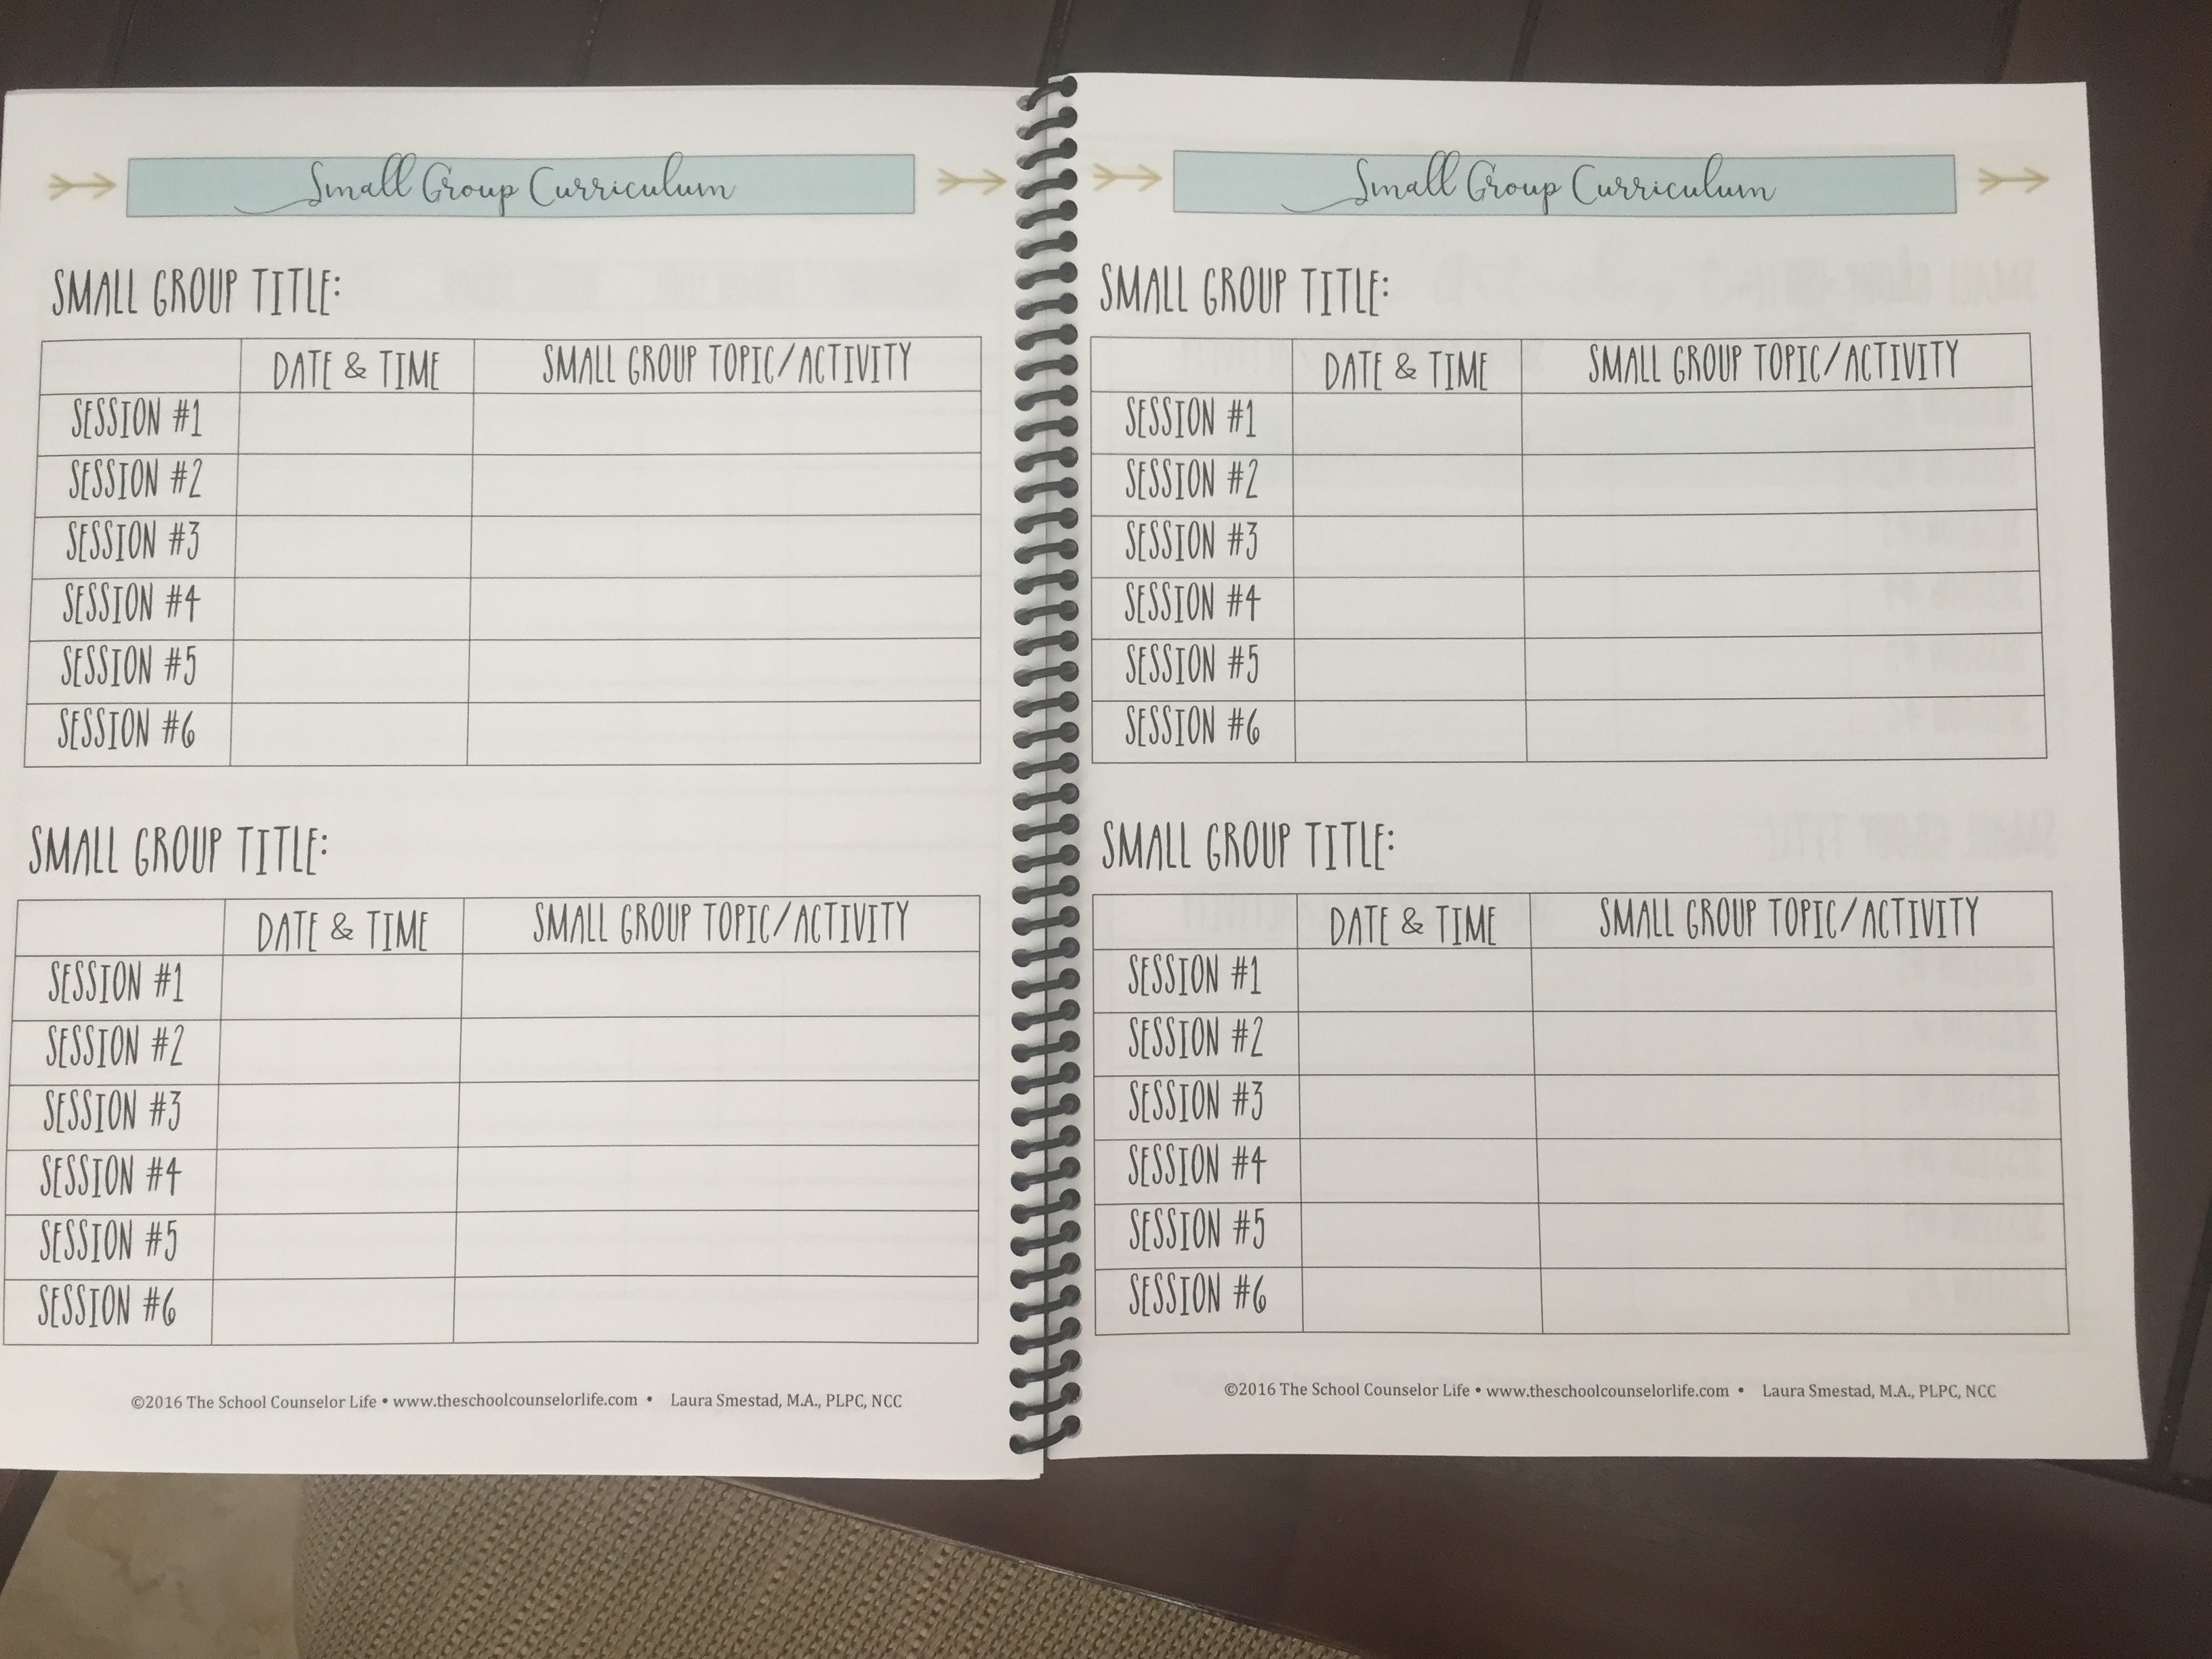 Small Group Curriculum
SMALL GROUP TITLE:
DATE & TIME SMALL GROUP TOPIC/ACTIVITY
SESSION #1
SESSION #2
SESSION #3
SESSION #4
SESSION #5
SESSION #6
SMALL GROUP TITLE:
DATE & TIME SMALL GROUP TOPIC/ACTIVITY
SESSION #1
SESSION #2
SESSION #3
SESSION #4
SESSION #5
SESSION #6
©2016 The School Counselor Life • www.theschoolcounselorlife.com • Laura Smestad, M.A., PLPC, NCC
Small Group Curriculum
SMALL GROUP TITLE:
DATE & TIME SMALL GROUP TOPIC/ACTIVITY
SESSION #1
SESSION #2
SESSION #3
SESSION #4
SESSION #5
SESSION #6
SMALL GROUP TITLE:
DATE & TIME SMALL GROUP TOPIC/ACTIVITY
SESSION #1
SESSION #2
SESSION #3
SESSION #4
SESSION #5
SESSION #6
©2016 The School Counselor Life • www.theschoolcounselorlife.com • Laura Smestad, M.A., PLPC, NCC